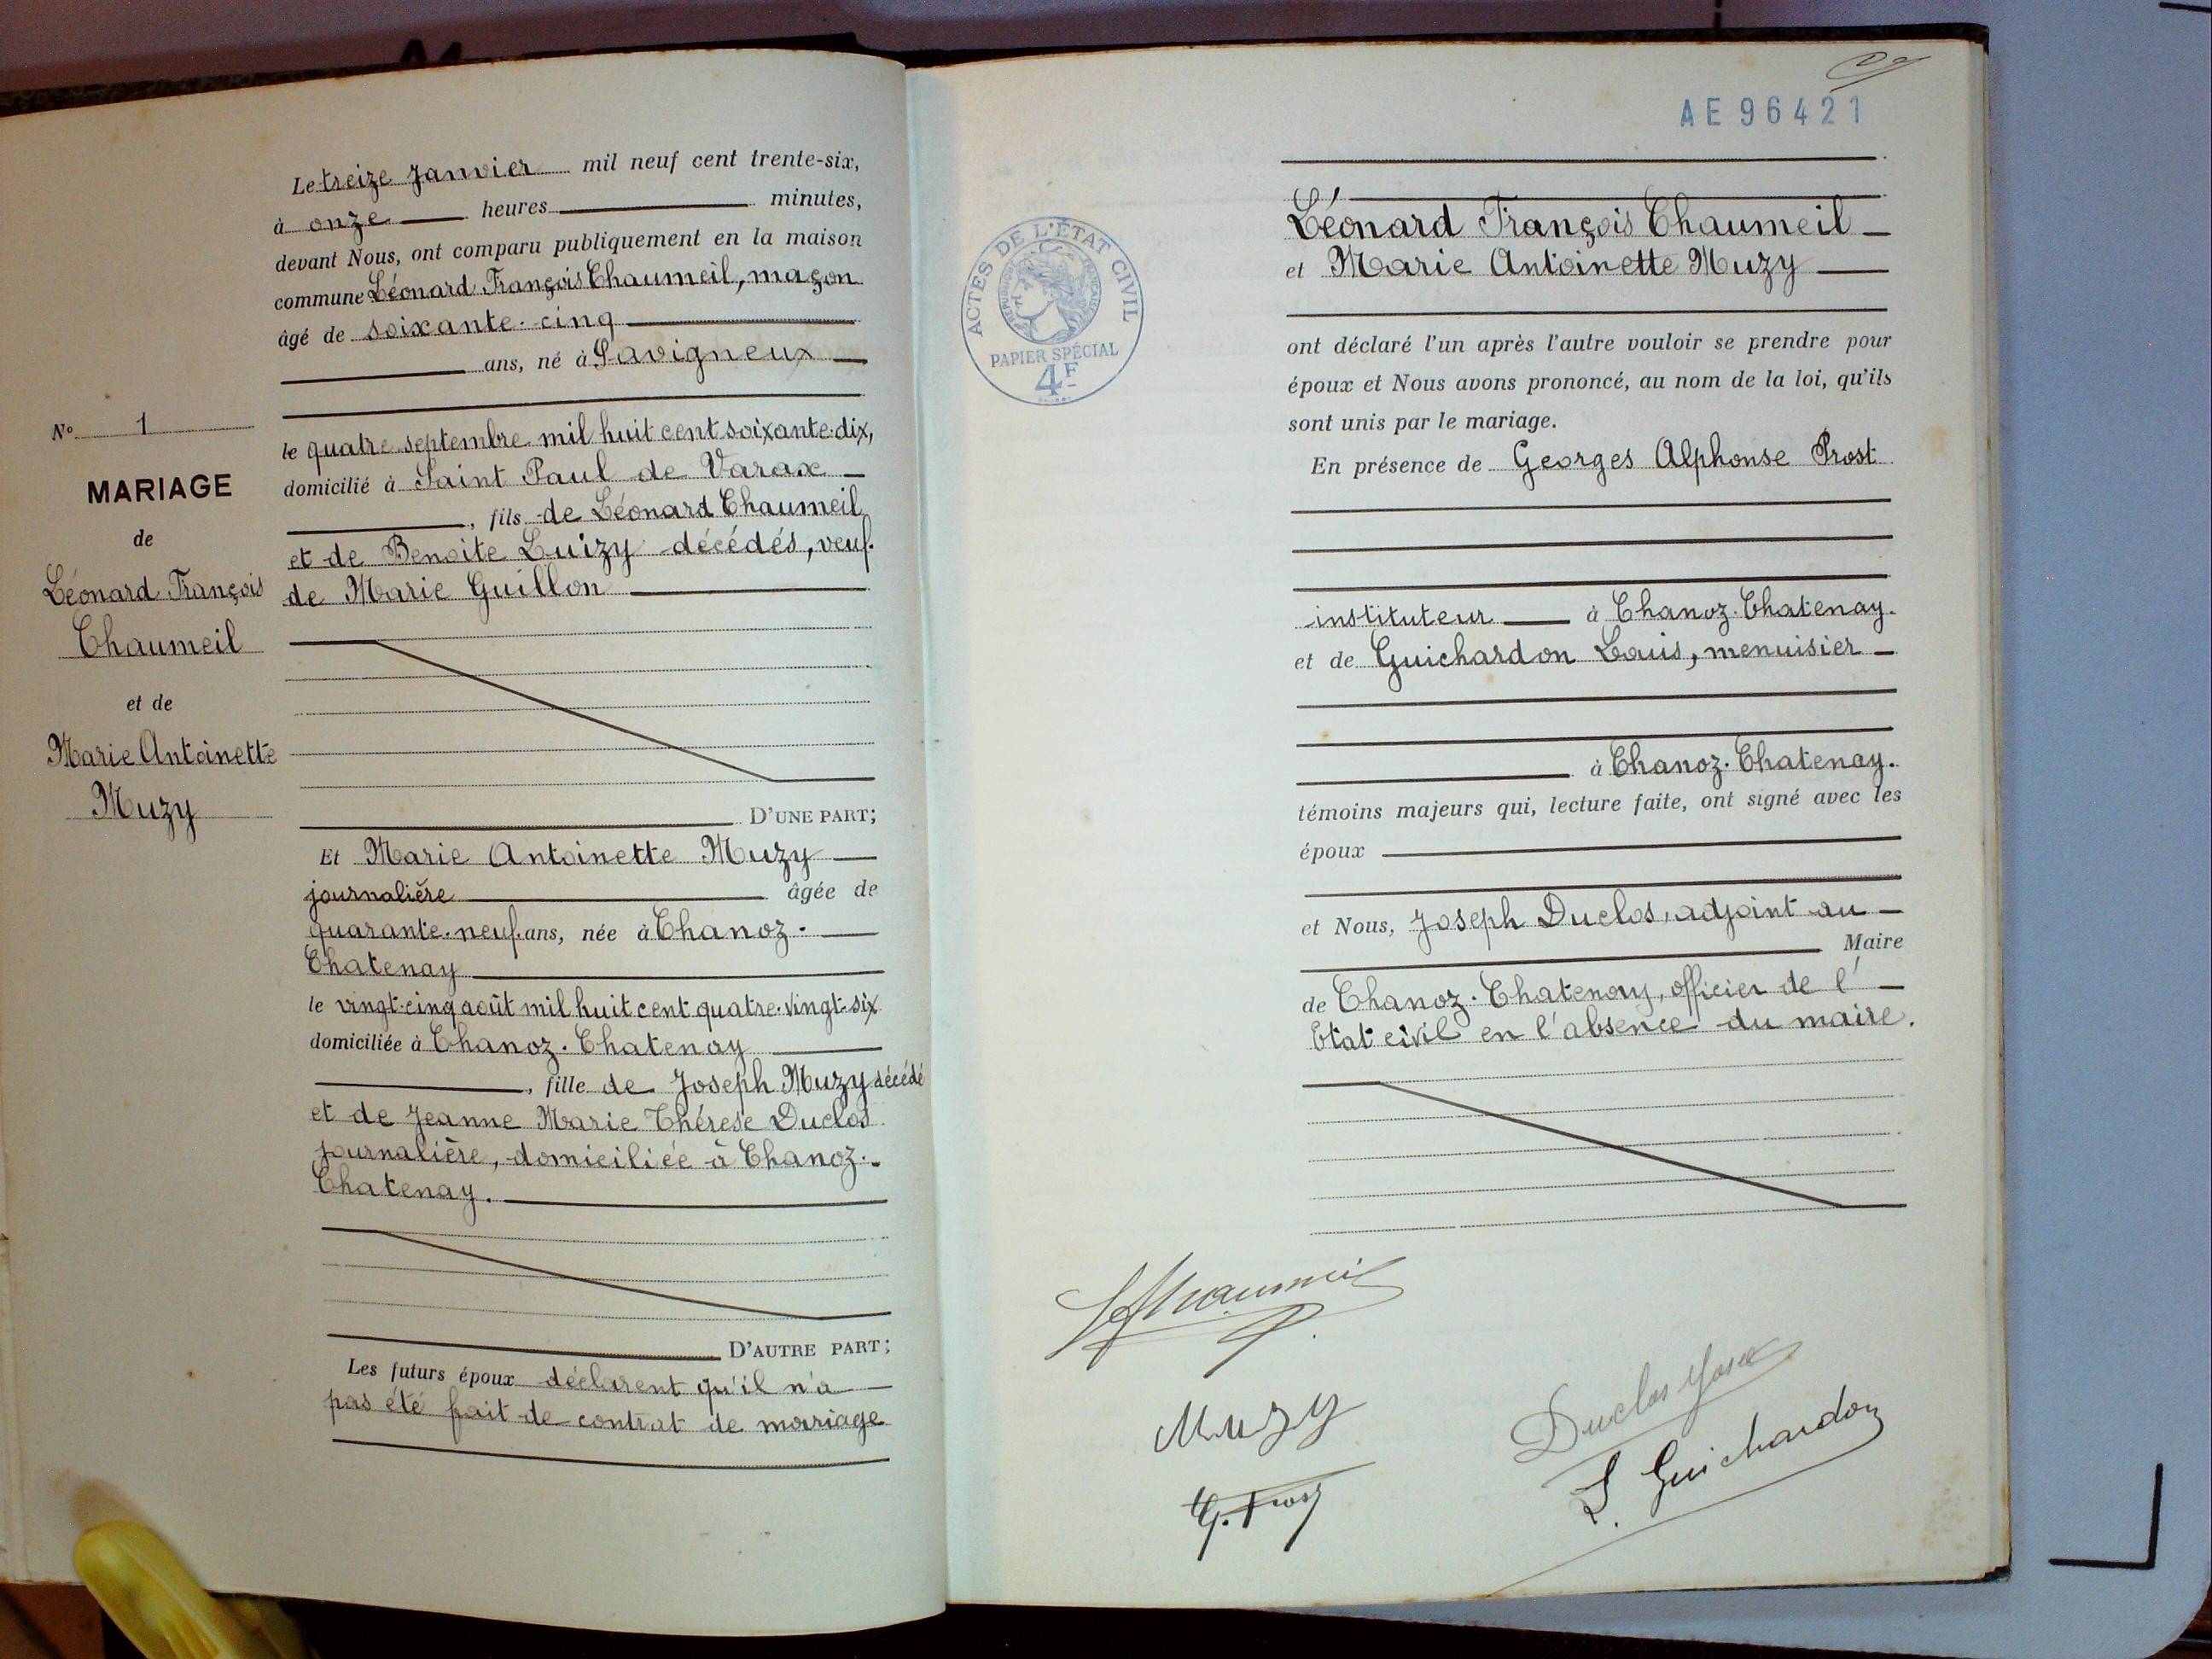 Le treize Janvier mil neuf cent trente-six,
à onze heures minutes,
devant Nous, ont comparu publiquement en la maison
commune Léonard François Chaumeil, maçon
âgé de soixante-cinq
ans, né à Savigneux
le quatre septembre mil huit cent soixante-dix,
domicilié à Saint Paul de Varax
, fils de Léonard Chaumeil
et de Benoite Luizy décédés, veuf
de Marie Guillon
D'UNE PART;
Et Marie Antoinette Muzy
journalière âgée de
quarante-neuf ans, née à Chanoz-
Chatenay
le vingt-cinq août mil huit cent quatre-vingt-six
domiciliée à Chanoz-Chatenay
, fille de Joseph Muzy décédé
et de Jeanne Marie Thérèse Duclos
journalière, domiciliée à Chanoz-
Chatenay.
D'AUTRE PART;
Les futurs époux déclarent qu'il n'a
pas été fait de contrat de mariage
N° 1
MARIAGE
de
Léonard François
Chaumeil
et de
Marie Antoinette
Muzy
AE 96421
ACTES DE L'ÉTAT CIVIL
RÉPUBLIQUE FRANÇAISE
PAPIER SPÉCIAL
4F
Léonard François Chaumeil
et Marie Antoinette Muzy
ont déclaré l'un après l'autre vouloir se prendre pour
époux et Nous avons prononcé, au nom de la loi, qu'ils
sont unis par le mariage.
En présence de Georges Alphonse Prost
instituteur à Chanoz-Chatenay.
et de Guichardon Louis, menuisier
à Chanoz-Chatenay.
témoins majeurs qui, lecture faite, ont signé avec les
époux
et Nous, Joseph Duclos, adjoint au
Maire
de Chanoz-Chatenay, officier de l'
Etat civil en l'absence du maire.
Chaumeil
Muzy
G. Prost
Duclos
L. Guichardon